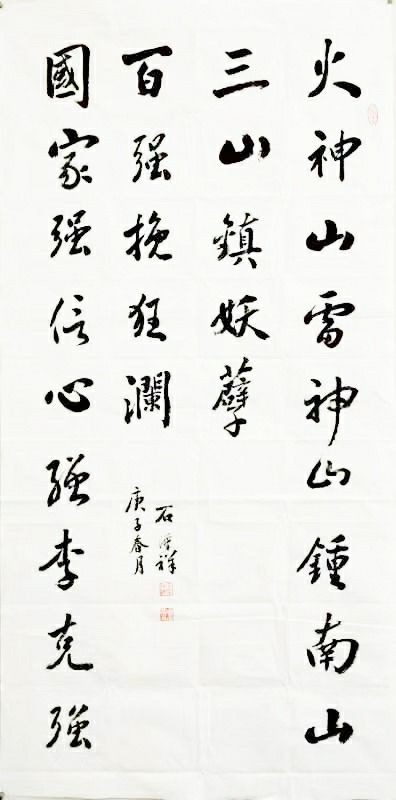 火神山雷神山鍾南山
三山鎮妖孽
國家强信心强李克强
百强挽狂瀾
庚子春月
石 祥